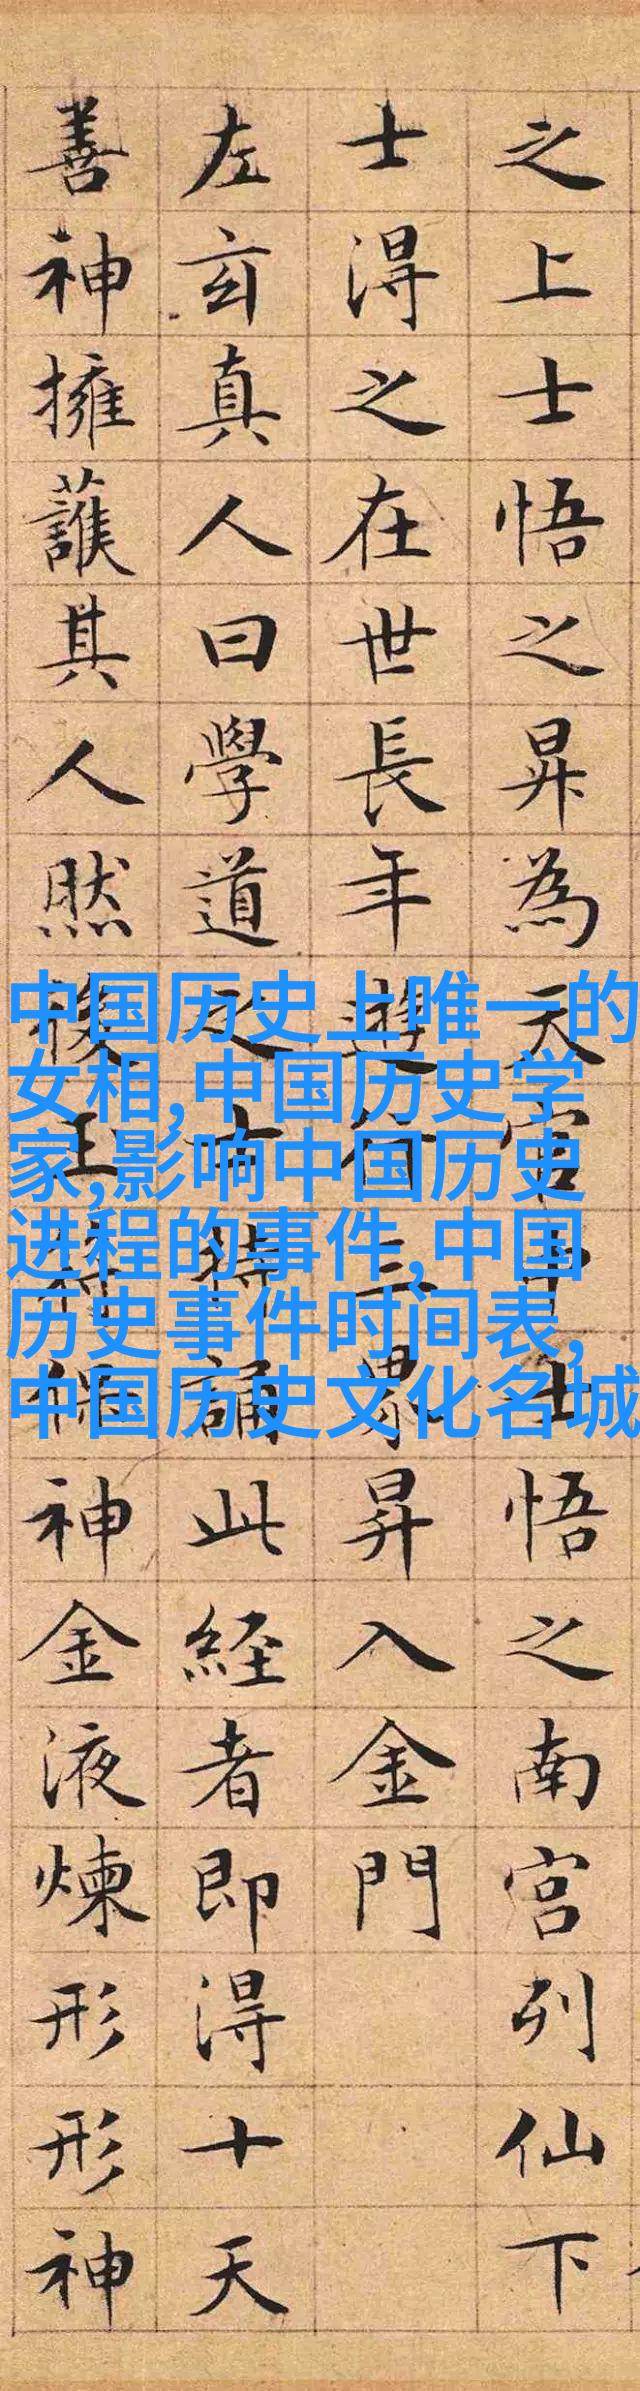 之上士悟之昇為天官中士悟之南宮列仙下
士得之在世長年遊行三界昇入金門
左玄真人曰學道之士持誦此經者即得十天
善神擁護其人然後玉符保神金液煉形形神
中国历史上唯一的
女相,中国历史学
家,影响中国历史
进程的事件,中国
历史事件时间表,
中国历史文化名城